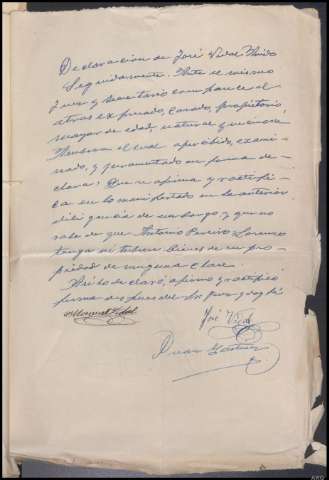 Declaración de José Vidal
Seguidamente. Ante el mismo
Juez y Secretario comparece el
expresado, casado, propietario,
mayor de edad, natural
el cual apercibido, exami-
nado, y juramentado en forma de-
clara: Que se afirma y ratifi-
ca en lo manifestado en la anterior
diligencia de embargo y que no
sabe de que Antonio Pereiro Lorenzo
tenga ni tubiere bienes de su pro-
piedad de ninguna clase.
Así lo declaró, afirmó y ratificó
firma después del Sr. Juez y doy fé
Manuel Vidal
José Vidal